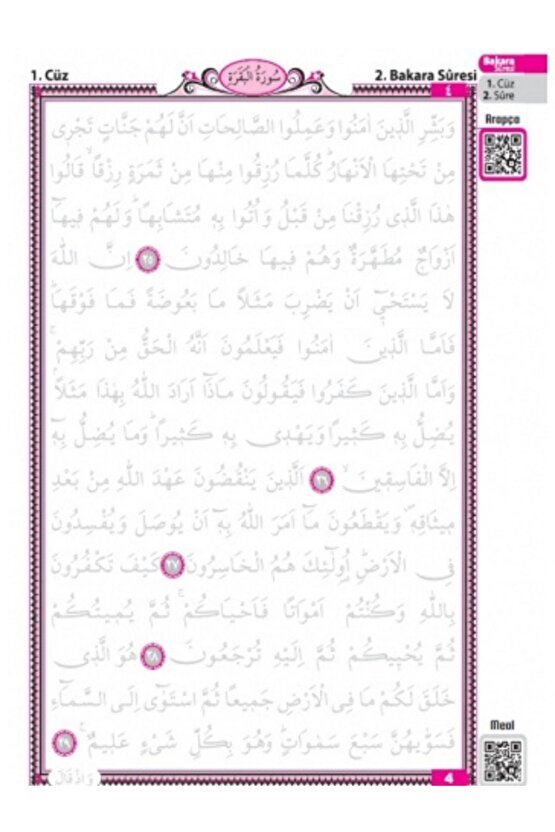 1. Cüz
سُورَةُ الْبَقَرَةِ
2. Bakara Sûresi
Bakara
Sûresi
1. Cüz
2. Sûre
٤
Arapça
وَبَشِّرِ الَّذِينَ اٰمَنُوا وَعَمِلُوا الصَّالِحَاتِ اَنَّ لَهُمْ جَنَّاتٍ تَجْرِى
مِنْ تَحْتِهَا الْاَنْهَارُۜ كُلَّمَا رُزِقُوا مِنْهَا مِنْ ثَمَرَةٍ رِزْقًاۙ قَالُوا
هٰذَا الَّذِى رُزِقْنَا مِنْ قَبْلُ وَاُتُوا بِهِ مُتَشَابِهًاۜ وَلَهُمْ فِيهَٓا
اَزْوَاجٌ مُطَهَّرَةٌ وَهُمْ فِيهَا خَالِدُونَ ٢٥ اِنَّ اللّٰهَ
لَا يَسْتَحْيِٓ اَنْ يَضْرِبَ مَثَلًا مَا بَعُوضَةً فَمَا فَوْقَهَاۜ
فَاَمَّا الَّذِينَ اٰمَنُوا فَيَعْلَمُونَ اَنَّهُ الْحَقُّ مِنْ رَبِّهِمْۚ
وَاَمَّا الَّذِينَ كَفَرُوا فَيَقُولُونَ مَاذَٓا اَرَادَ اللّٰهُ بِهٰذَا مَثَلًاۢ
يُضِلُّ بِهِ كَثِيرًا وَيَهْدِى بِهِ كَثِيرًاۜ وَمَا يُضِلُّ بِهِٓ
اِلَّا الْفَاسِقِينَۙ ٢٦ اَلَّذِينَ يَنْقُضُونَ عَهْدَ اللّٰهِ مِنْ بَعْدِ
مِيثَاقِهِۖ وَيَقْطَعُونَ مَٓا اَمَرَ اللّٰهُ بِهِٓ اَنْ يُوصَلَ وَيُفْسِدُونَ
فِى الْاَرْضِۜ اُولٰٓئِكَ هُمُ الْخَاسِرُونَ ٢٧ كَيْفَ تَكْفُرُونَ
بِاللّٰهِ وَكُنْتُمْ اَمْوَاتًا فَاَحْيَاكُمْۚ ثُمَّ يُمِيتُكُمْ
ثُمَّ يُحْيِيكُمْ ثُمَّ اِلَيْهِ تُرْجَعُونَ ٢٨ هُوَ الَّذِى
خَلَقَ لَكُمْ مَا فِى الْاَرْضِ جَمِيعًا ثُمَّ اسْتَوٰٓى اِلَى السَّمَٓاءِ
فَسَوّٰيهُنَّ سَبْعَ سَمٰوَاتٍۜ وَهُوَ بِكُلِّ شَىْءٍ عَلِيمٌ۟ ٢٩
Meal
وَاِذْ قَالَ
4